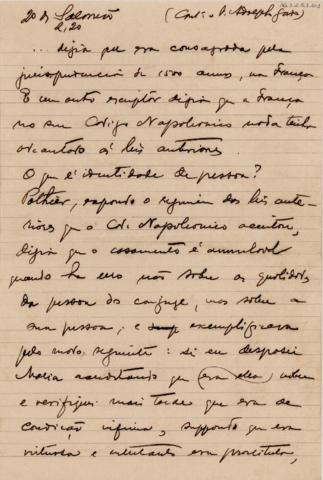 20 de Salomão (Cont. a D.
2,20
... dizia que era consagrada pela
jurisprudencia de 1500 annos, na França.
E um outro escriptor dizia que a França
no seu Codigo Napoleonico nada tinha
ás leis anteriores.
O que é identidade de pessoa?
Pothier, expondo o regimen das leis ante-
riores que o Cod. Napoleonico aceitou,
dizia que o casamento é annullavel
quando ha erro não sobre as qualidades
da pessoa do conjuge, mas sobre a
sua pessoa; e exemplificava
pelo modo seguinte: si eu desposei
Maria acreditando que era ella nobre
e verifiquei mais tarde que era de
condição infima, suppondo que era
virtuosa e era prostituta,